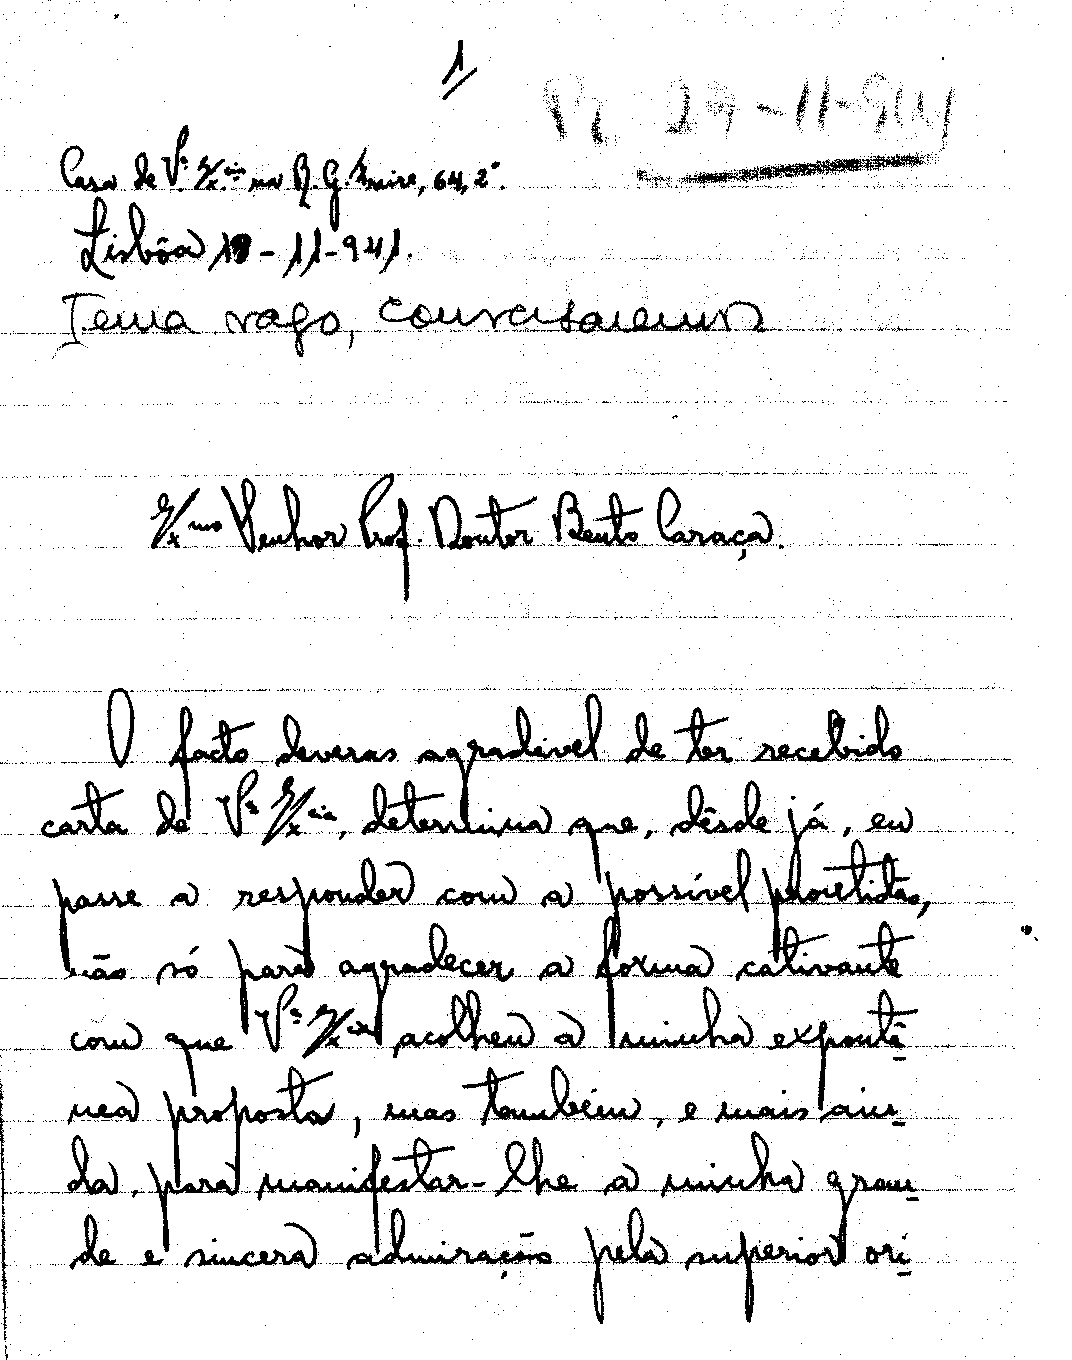 1
R 29-11-941
Casa de V.ª Ex.cia na R. G. Freire, 64, 2º.
Lisbôa 18-11-941.
Tema vago, conversaremos
Ex.mo Senhor Prof. Doutor Bento Caraça.
O facto deveras agradável de ter recebido
carta de V.ª Ex.cia, determina que, désde já, eu
passe a responder com a possível prontidão,
não só para agradecer a forma cativante
com que V.ª Ex.cia acolheu a minha expontâ-
nea proposta, mas também, e mais ain-
da, para manifestar-lhe a minha gran-
de e sincera admiração pela superior ori-